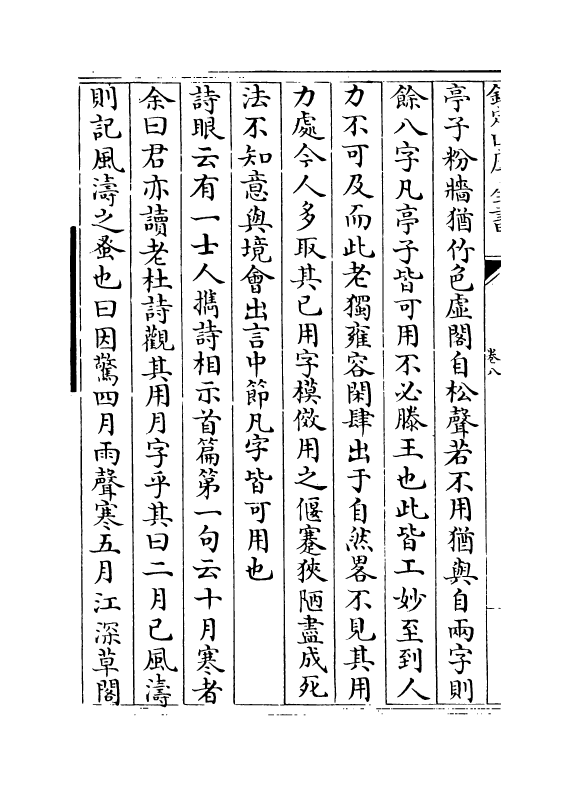 欽定四庫全書
卷八
亭子粉牆猶竹色虛閣自松聲若不用猶與自兩字則
餘八字凡亭子皆可用不必滕王也此皆工妙至到人
力不可及而此老獨雍容閑肆出于自然畧不見其用
力處今人多取其已用字模倣用之偃蹇狹陋盡成死
法不知意與境會出言中節凡字皆可用也
詩眼云有一士人攜詩相示首篇第一句云十月寒者
余曰君亦讀老杜詩觀其用月字乎其曰二月已風濤
則記風濤之蚤也曰因驚四月雨聲寒五月江深草閣